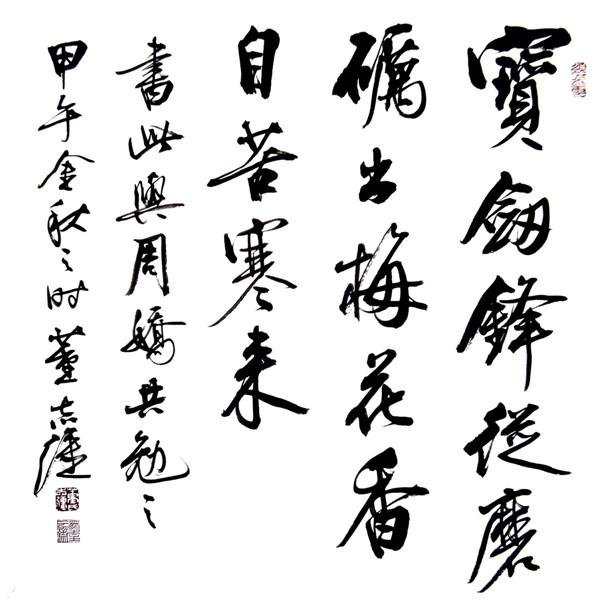 寶劍鋒從磨
礪出梅花香
自苦寒来
書此與周嬌共勉之
甲午金秋之时董志